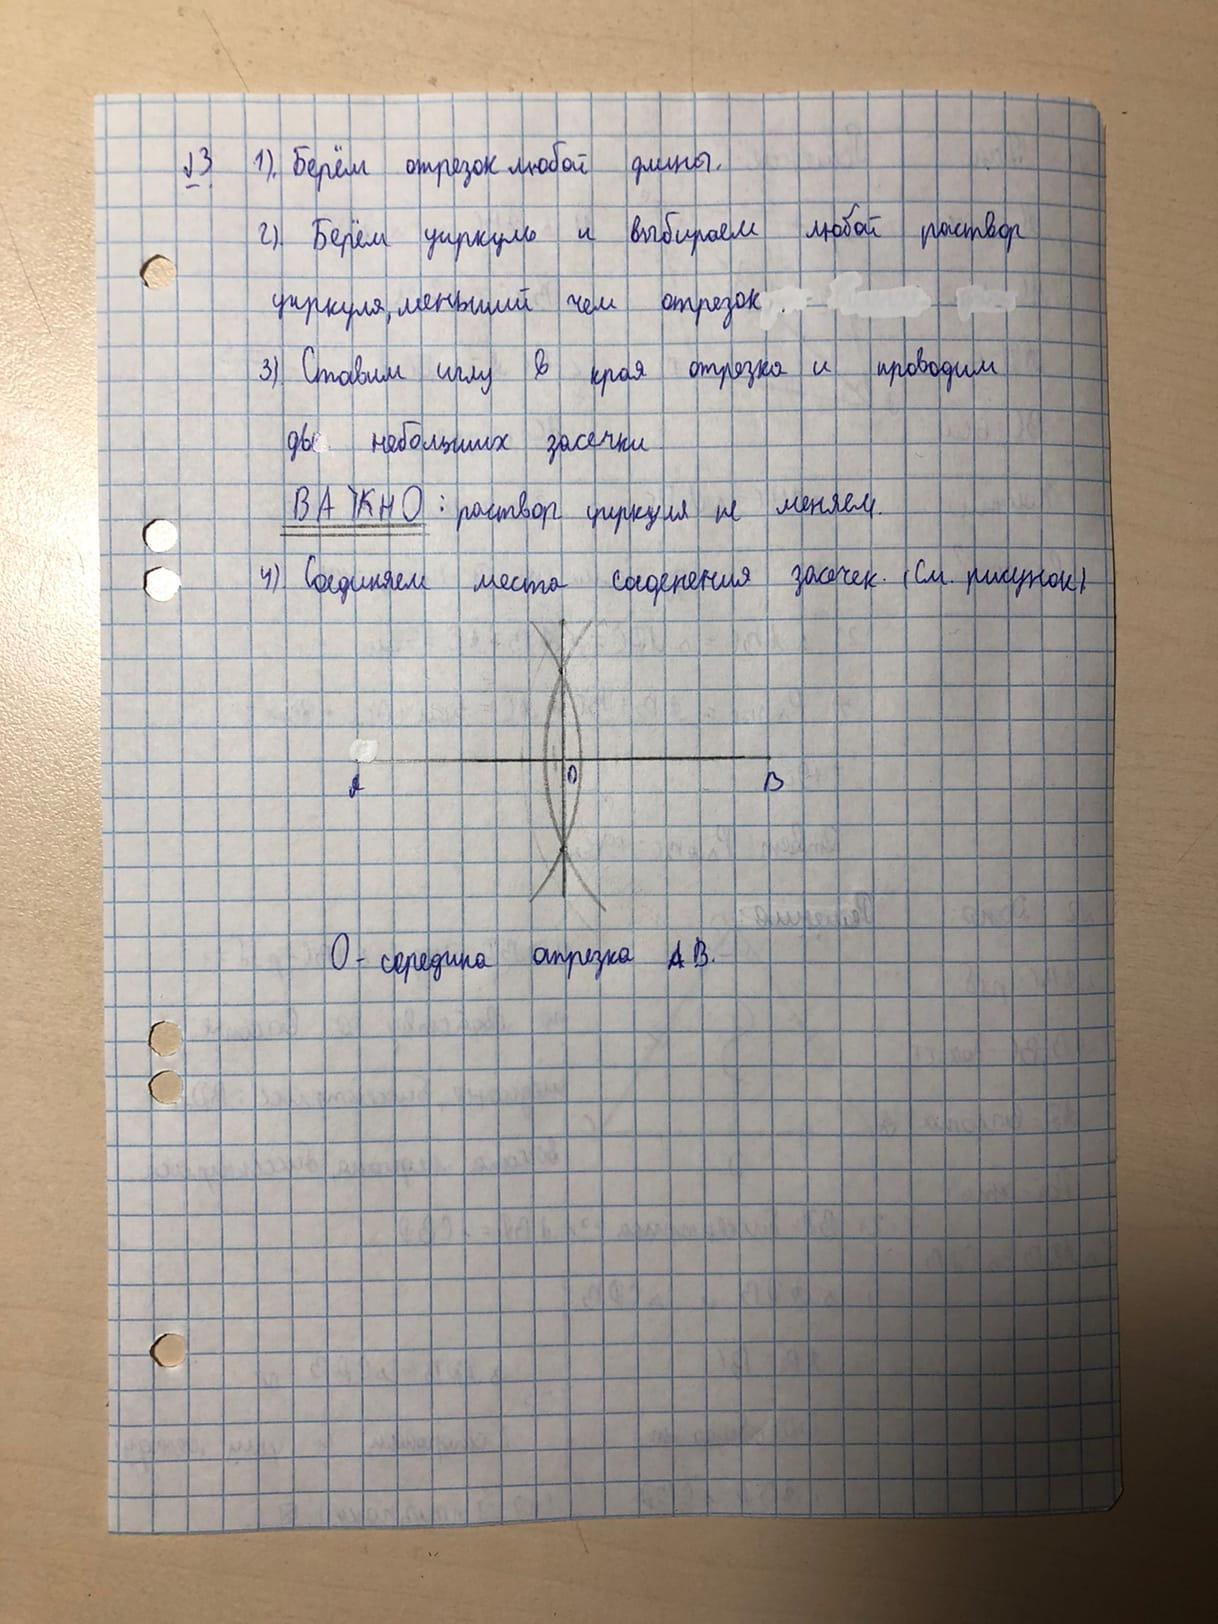 №3 1). Берём отрезок любой длины.
2). Берём циркуль и выбираем любой раствор
циркуля, меньший чем отрезок.
3) Ставим иглу в края отрезка и проводим
две небольших засечки
ВАЖНО: раствор циркуля не меняем.
4) Соединяем места соденения засечек. (См. рисунок)
A O B
O - середина отрезка AB.